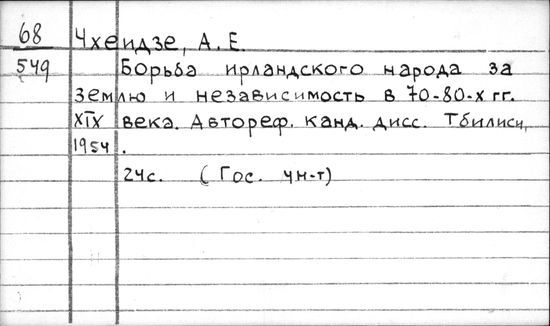 68 Чхеидзе, А. Е.
549 Борьба ирландского народа за
землю и независимость в 70-80-х гг.
XIX века. Автореф. канд. дисс. Тбилиси,
1954.
24с. (Гос. ун-т)